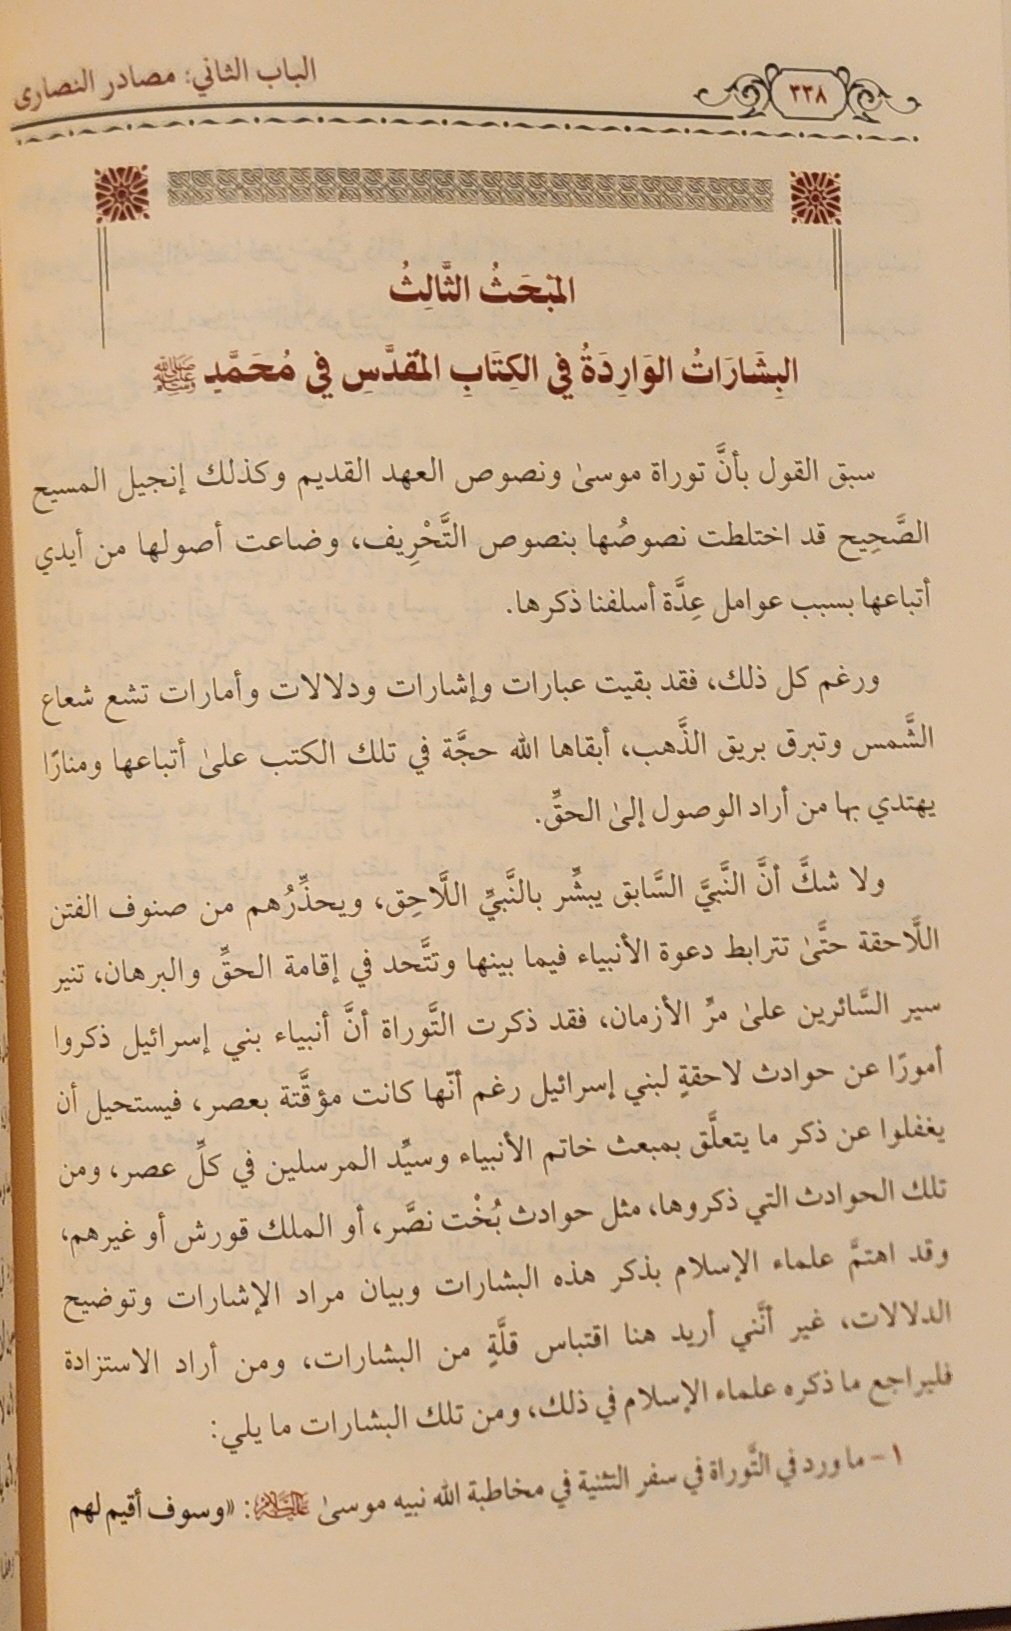 ٣٣٨
الباب الثاني: مصادر النصارى
المَبْحَثُ الثَّالِثُ
البِشَارَاتُ الوَارِدَةُ في الكِتَابِ المُقَدَّسِ في مُحَمَّدٍ ﷺ
سبق القول بأنَّ توراة موسىٰ ونصوص العهد القديم وكذلك إنجيل المسيح
الصَّحِيح قد اختلطت نصوصُها بنصوص التَّحْرِيف، وضاعت أصولها من أيدي
أتباعها بسبب عوامل عِدَّة أسلفنا ذكرها.
ورغم كل ذلك، فقد بقيت عبارات وإشارات ودلالات وأمارات تشع شعاع
الشَّمس وتبرق بريق الذَّهب، أبقاها الله حجَّة في تلك الكتب علىٰ أتباعها ومنارًا
يهتدي بها من أراد الوصول إلىٰ الحقِّ.
ولا شكَّ أنَّ النَّبيَّ السَّابق يبشِّر بالنَّبيِّ اللَّاحِق، ويحذِّرُهم من صنوف الفتن
اللَّاحقة حتَّىٰ تترابط دعوة الأنبياء فيما بينها وتتَّحد في إقامة الحقِّ والبرهان، تنير
سير السَّائرين علىٰ مرِّ الأزمان، فقد ذكرت التَّوراة أنَّ أنبياء بني إسرائيل ذكروا
أمورًا عن حوادث لاحقةٍ لبني إسرائيل رغم أنّها كانت مؤقَّتة بعصر، فيستحيل أن
يغفلوا عن ذكر ما يتعلَّق بمبعث خاتم الأنبياء وسيِّد المرسلين في كلِّ عصر، ومن
تلك الحوادث التي ذكروها، مثل حوادث بُخْت نصَّر، أو الملك قورش أو غيرهم،
وقد اهتمَّ علماء الإسلام بذكر هذه البشارات وبيان مراد الإشارات وتوضيح
الدلالات، غير أنَّني أريد هنا اقتباس قلَّةٍ من البشارات، ومن أراد الاستزادة
فليراجع ما ذكره علماء الإسلام في ذلك، ومن تلك البشارات ما يلي:
١- ما ورد في التَّوراة في سفر التثنية في مخاطبة الله نبيه موسىٰ عليه السلام: «وسوف أقيم لهم